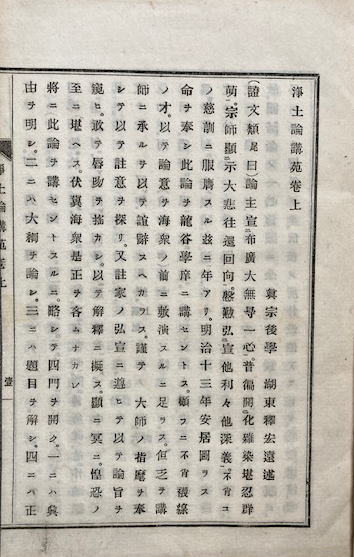 淨土論講苑卷上
眞宗後學 湖東釋宏遠述
(證文類𡱈曰)論主宣布廣大無导一心。普徧開化雜染堪忍群
萌。宗師顯示大悲往還回向。慇懃弘宣他利々他深義。不肖コ
ノ慈訓ニ服膺スル玆ニ年アリ。明治十三年安居図ラス
命ヲ奉シ此論ヲ龍谷學庠ニ講セントス。顧フニ不肖
ノオ。以テ論意ヲ海衆ノ前ニ敷演スルニ足ラス。但乏ヲ講
師ニ承ルヲ以テ誼辭スヘカラス。謹テ 大師ノ指麾ヲ奉
シテ以テ註意ヲ探リ。又註家ノ弘宣ニ遵ヒテ以テ論旨ヲ
窺ヒ。敢テ唇吻ヲ搖カシ。以テ解釋ニ擬ス。顯ニ冥ニ。惶恐ノ
至ニ堪ヘス。伏冀海衆是正ヲ吝ムナカレ
將ニ此論ヲ講セントスルニ。略シテ四門ヲ開ク。一ニハ興
由ヲ明シ。二ニハ大綱ヲ論シ。三ニハ題目ヲ解シ。四ニハ正
淨土論講苑卷上
壹